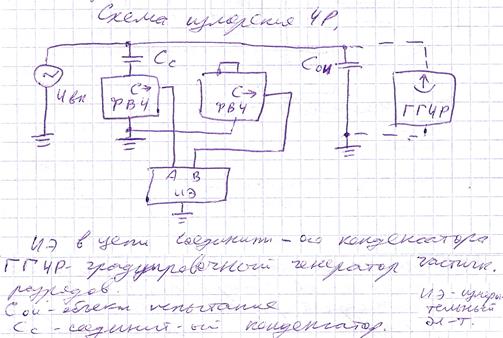 Схема измерения ЧР.
Cc
Uвн
C→
РВЧ
C→
РВЧ
Cои
ГГЧР
A B
ИЭ
ИЭ в цепи соединит-ого конденсатора
ГГЧР - градуировочный генератор частич.
разрядов.
Cои - объект испытания
Cc - соединит-ый конденсатор.
ИЭ - измери-
тельный
эл-т.